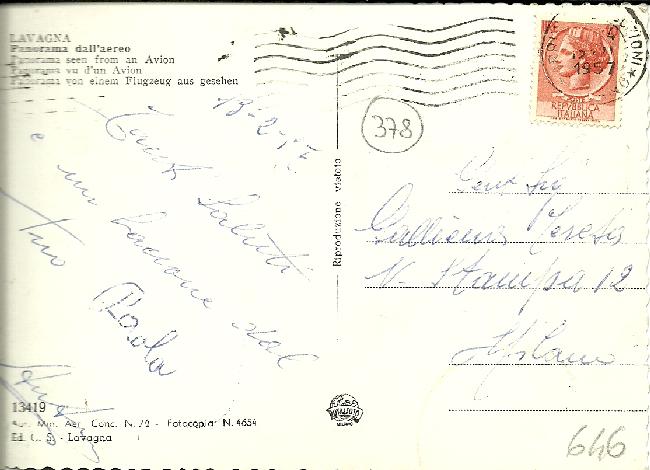 LAVAGNA
Panorama dall'aereo
Panorama seen from an Avion
Panorama vu d'un Avion
Panorama von einem Flugzeug aus gesehen
13-2-57
Saluti
e un bacione dal
tuo
Paola
13419
Aut. Min. Aer. Conc. N. 72 - Fotocopiar N. 4654
Ed. C. S. - Lavagna
Riproduzione vietata
378
1957
REPVBBLICA
ITALIANA
Teresa
V. Stampa 12
Milano
646